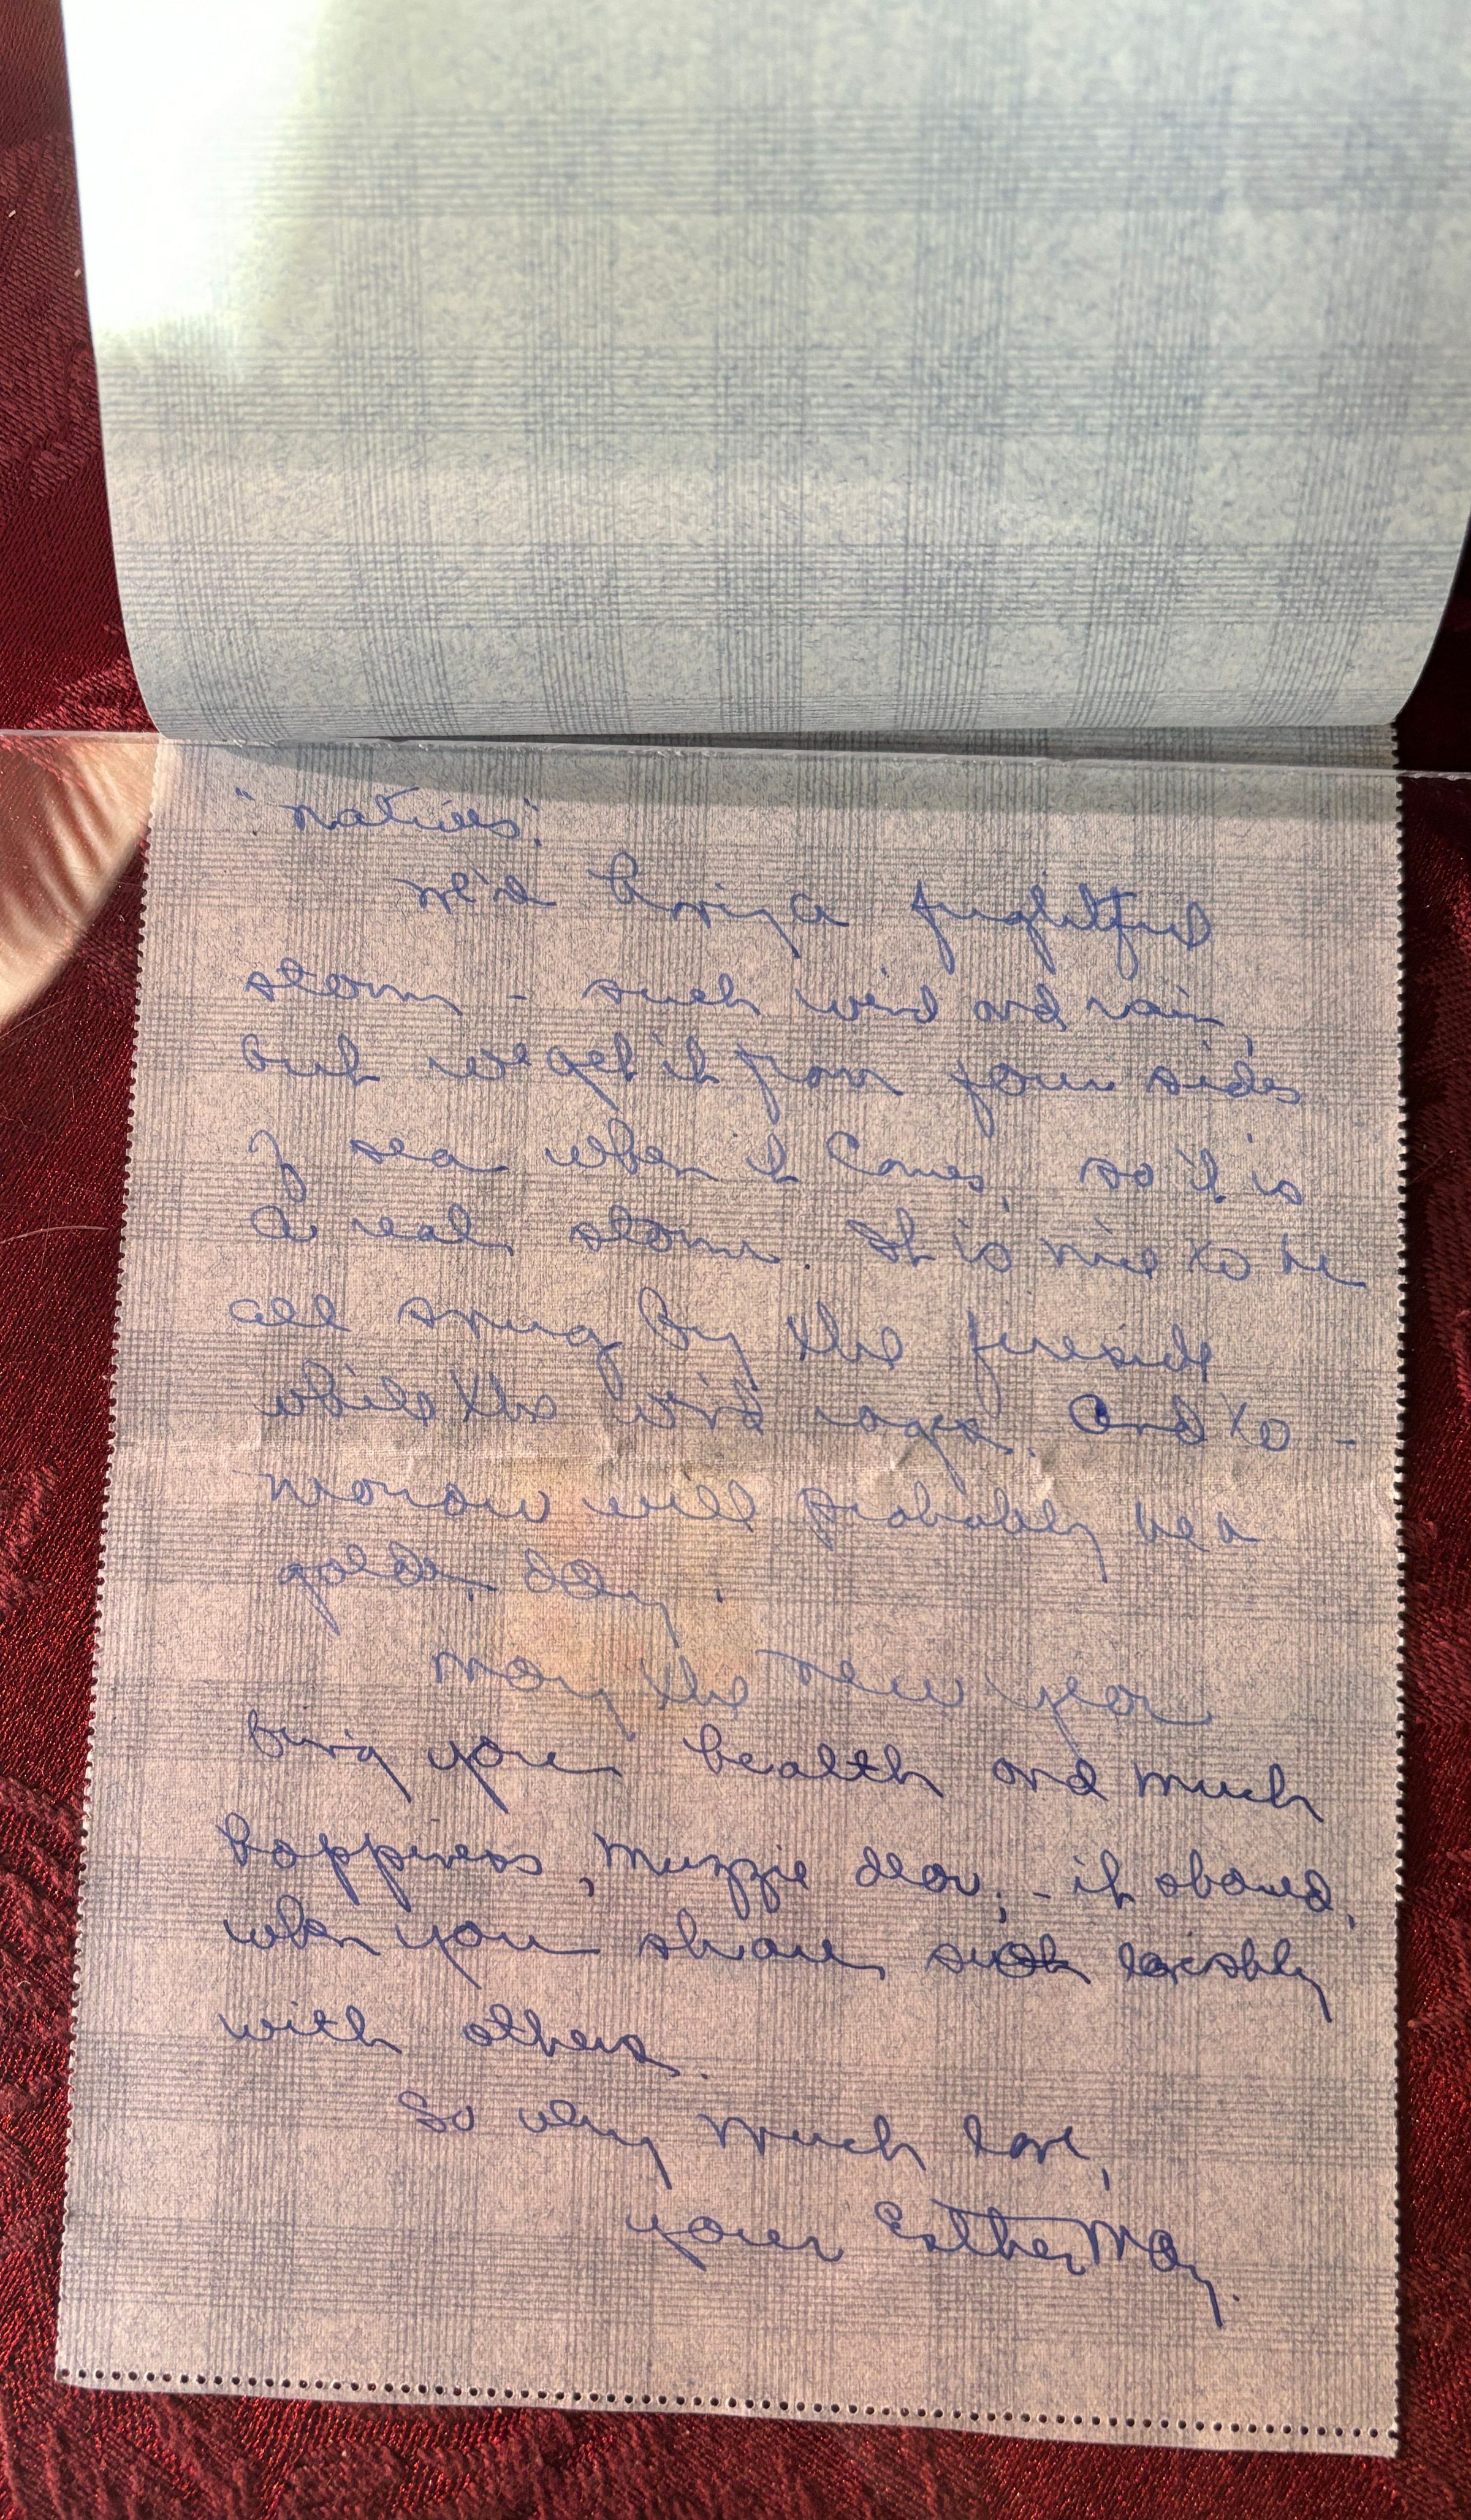 "natives".
We're having a frightful
storm - such wind and rain,
but we get it from four sides
of sea when it comes, so it is
a real storm. It is nice to be
all snug by the fireside
while the wind rages. And to-
morrow will probably be a
golden day.
May the New Year
bring you health and much
happiness, Muzzie dear, - it should,
when you share such lavishly
with others.
So very much love,
your Esther May.